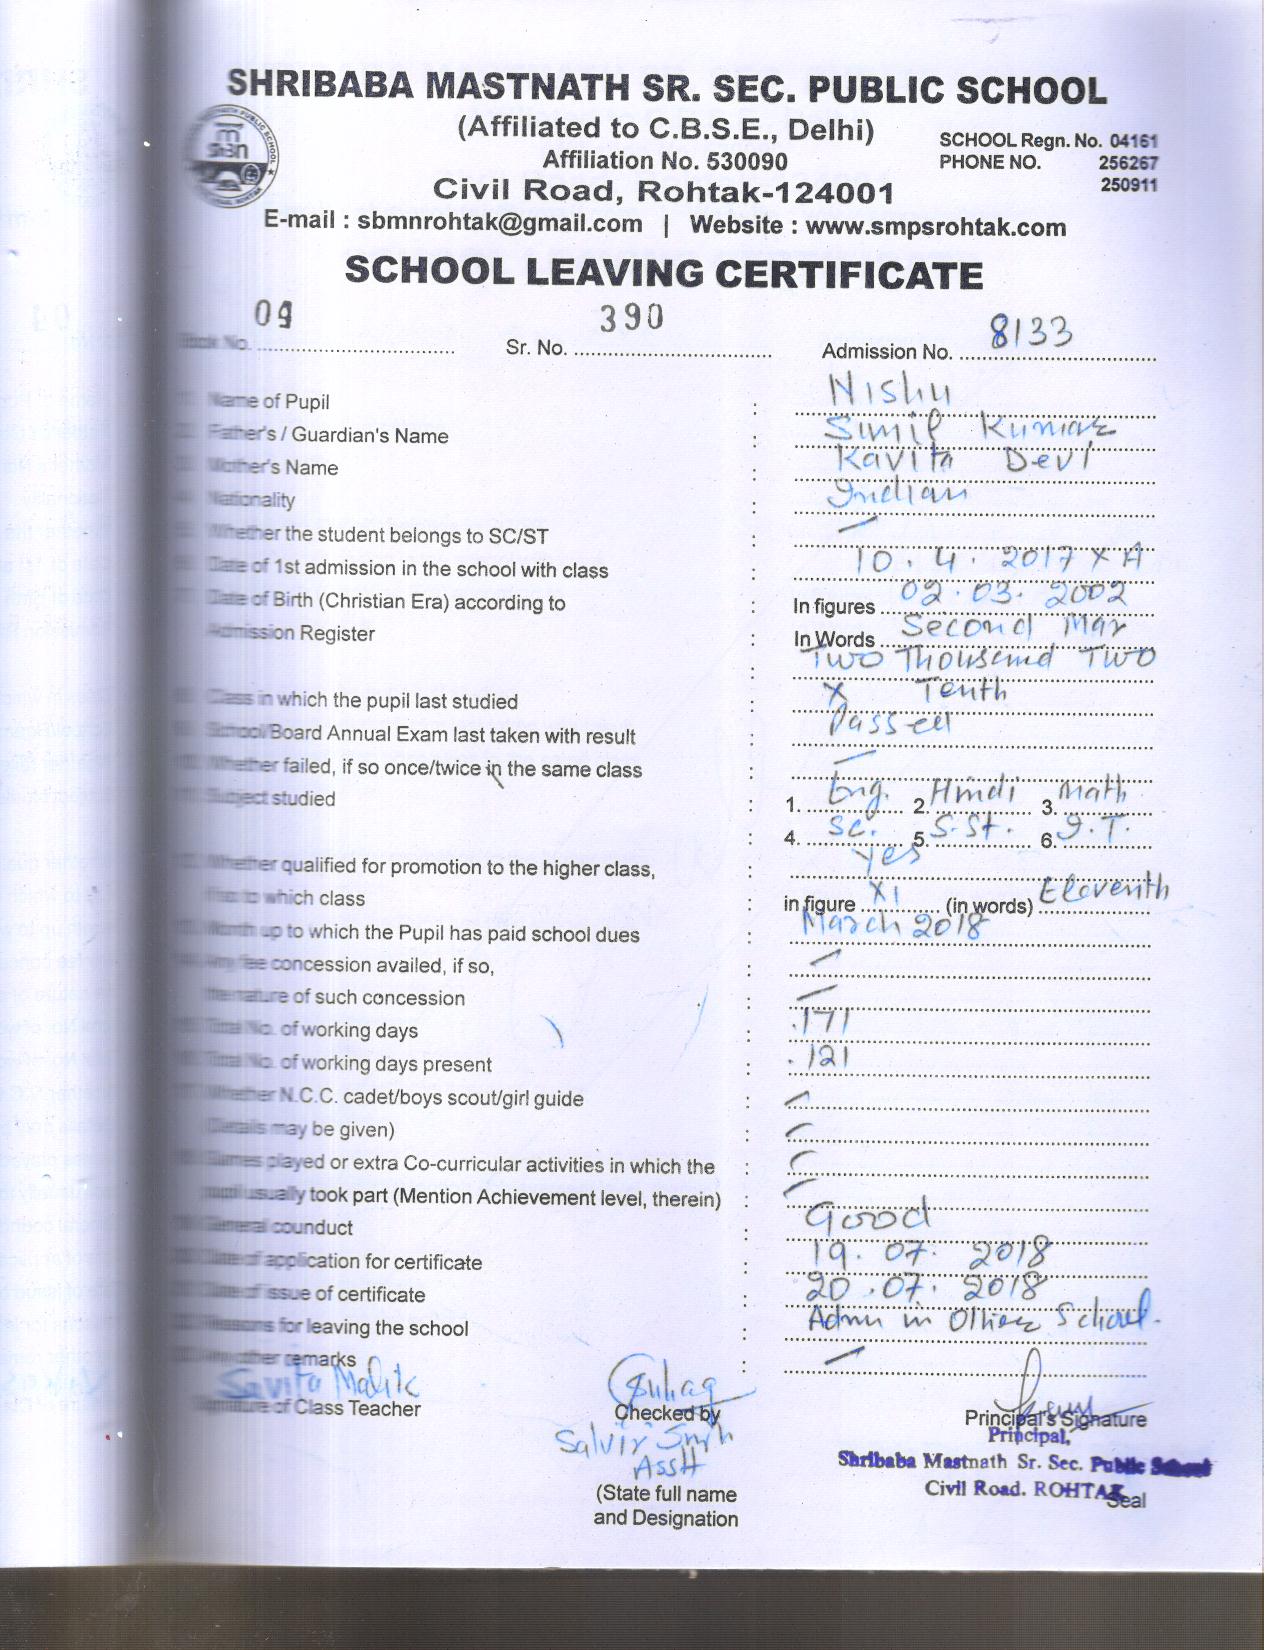 SHRIBABA MASTNATH SR. SEC. PUBLIC SCHOOL
(Affiliated to C.B.S.E., Delhi)
SCHOOL Regn. No. 04161
Affiliation No. 530090
PHONE NO. 256267
250911
Civil Road, Rohtak-124001
E-mail : sbmnrohtak@gmail.com | Website : www.smpsrohtak.com
SCHOOL LEAVING CERTIFICATE
Book No. 09 Sr. No. 390 Admission No. 8133
Name of Pupil : Nishu
Father's / Guardian's Name : Sunil Kumar
Mother's Name : Kavita Devi
Nationality : Indian
Whether the student belongs to SC/ST : —
Date of 1st admission in the school with class : 10.4.2017 X A
Date of Birth (Christian Era) according to : In figures 02.03.2002
Admission Register : In Words Second Mar
: Two Thousand Two
Class in which the pupil last studied : X Tenth
School/Board Annual Exam last taken with result : Passed
Whether failed, if so once/twice in the same class : —
Subject studied : 1. Eng. 2. Hindi 3. Math
: 4. Sc. 5. S.St. 6. I.T.
Whether qualified for promotion to the higher class, : Yes
to which class : in figure XI (in words) Eleventh
Month up to which the Pupil has paid school dues : March 2018
Any fee concession availed, if so, : —
the nature of such concession : —
Total No. of working days : 171
Total No. of working days present : 121
Whether N.C.C. cadet/boys scout/girl guide : —
(Details may be given) : —
Games played or extra Co-curricular activities in which the : —
pupil usually took part (Mention Achievement level, therein) : —
General counduct : Good
Date of application for certificate : 19.07.2018
Date of issue of certificate : 20.07.2018
Reasons for leaving the school : Admn in Other School.
Any other remarks : —
Savita Malik
Signature of Class Teacher
Checked by
Principal's Signature
Principal,
Shribaba Mastnath Sr. Sec. Public School
Civil Road. ROHTAK
Seal
(State full name
and Designation